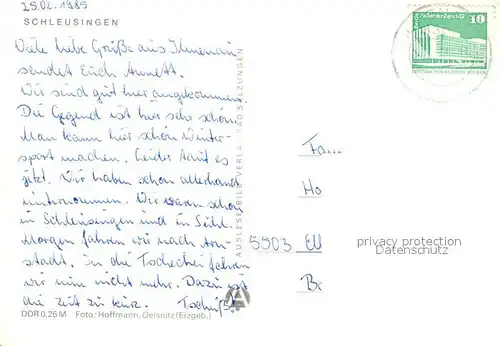 25.02.1985
SCHLEUSINGEN
Viele liebe Grüße aus Ilmenau
sendet Euch Annett.
Wir sind gut hier angekommen.
Die Gegend ist hier sehr schön.
Man kann hier schön Winter-
sport machen. Leider taut es
jetzt. Wir haben schon allerhand
unternommen. Wir waren schon
in Schleusingen und in Suhl.
Morgen fahren wir nach Arn-
stadt. In die Tschechei fahren
wir nun nicht mehr. Dazu ist
die Zeit zu kurz. Tschüß!
DDR 0,25 M Foto: Hoffmann, Oelsnitz (Erzgeb.)
AUSLESE-BILD-VERLAG BAD SALZUNGEN
10
Fa....
Ho
5503 Ell
privacy protection
Datenschutz